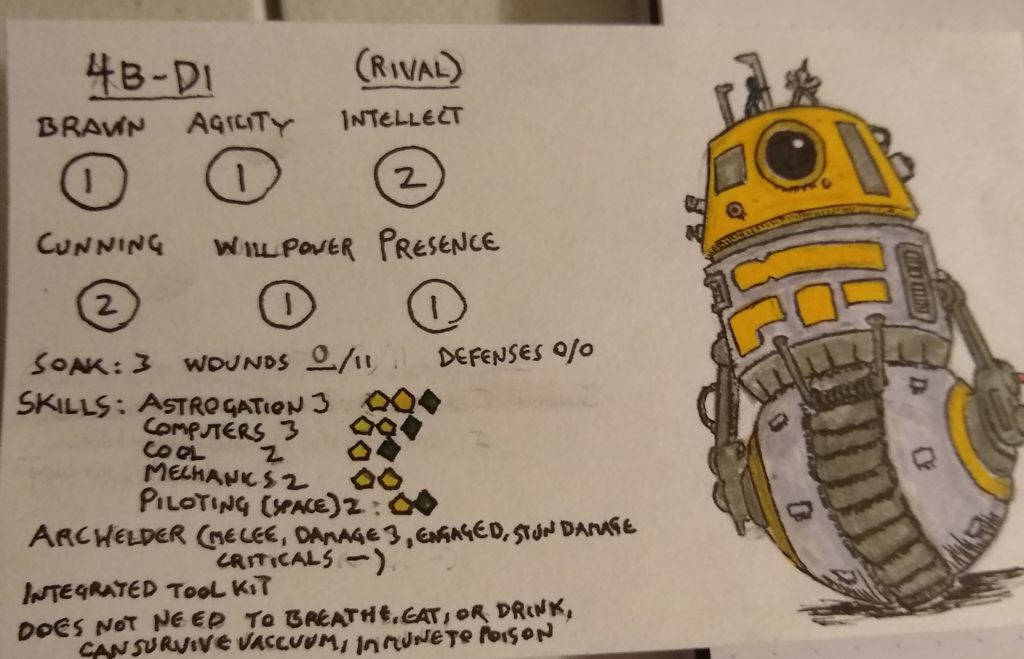 4B-D1 (RIVAL)
BRAWN AGILITY INTELLECT
1 1 2
CUNNING WILLPOWER PRESENCE
2 1 1
SOAK: 3 WOUNDS 0/11 DEFENSES 0/0
SKILLS: ASTROGATION 3
COMPUTERS 3
COOL 2
MECHANICS 2
PILOTING (SPACE) 2:
ARC WELDER (MELEE, DAMAGE 3, ENGAGED, STUN DAMAGE
CRITICALS –)
INTEGRATED TOOL KIT
DOES NOT NEED TO BREATHE, EAT, OR DRINK,
CAN SURVIVE VACCUUM, IMMUNE TO POISON